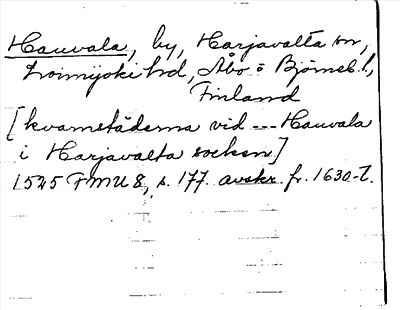 Hauvala, by, Harjavalta sn,
Loimijoki hd, Åbo o Björneb. l.,
Finland
[kvarnstäderna vid --- Hauvala
i Harjavalta socken]
1525 FMU 8, s. 177. avskr. fr. 1630-t.